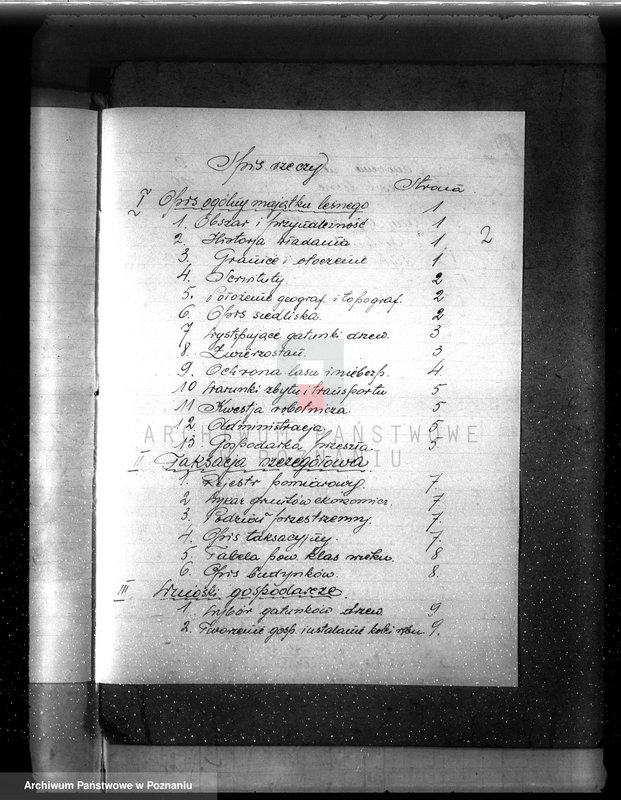 Spis rzeczy
Strona
I Opis ogólny majątku leśnego 1
1. Obszar i przynależność 1
2. Historja władania 1.
3. Granice i otoczenie 1
4. Serwituty. 2
5. Położenie geograf. i topograf. 2
6. Opis siedliska. 2
7 Występujące gatunki drzew. 3
8. Zwierzostan. 3
9. Ochrona lasu i niebezp. 4
10 Warunki zbytu i transportu 5
11 Kwestja robotnicza. 5
12 Administracja. 5
13 Gospodarka przeszła. 5
II Taksacja szczegółowa
1. Rejestr pomiarowy 7.
2 Wykaz gruntów ekonomicz. 7.
3. Podział przestrzenny. 7.
4. Opis taksacyjny. 7.
5. Tabela pow. klas wieku. 8
6. Opis budynków. 8.
III Wnioski gospodarcze.
1. Wybór gatunków drzew 9
2. Tworzenie gosp. i ustalanie kolei rębu. 9.
2
ARCHIWUM PAŃSTWOWE
W POZNANIU
Archiwum Państwowe w Poznaniu